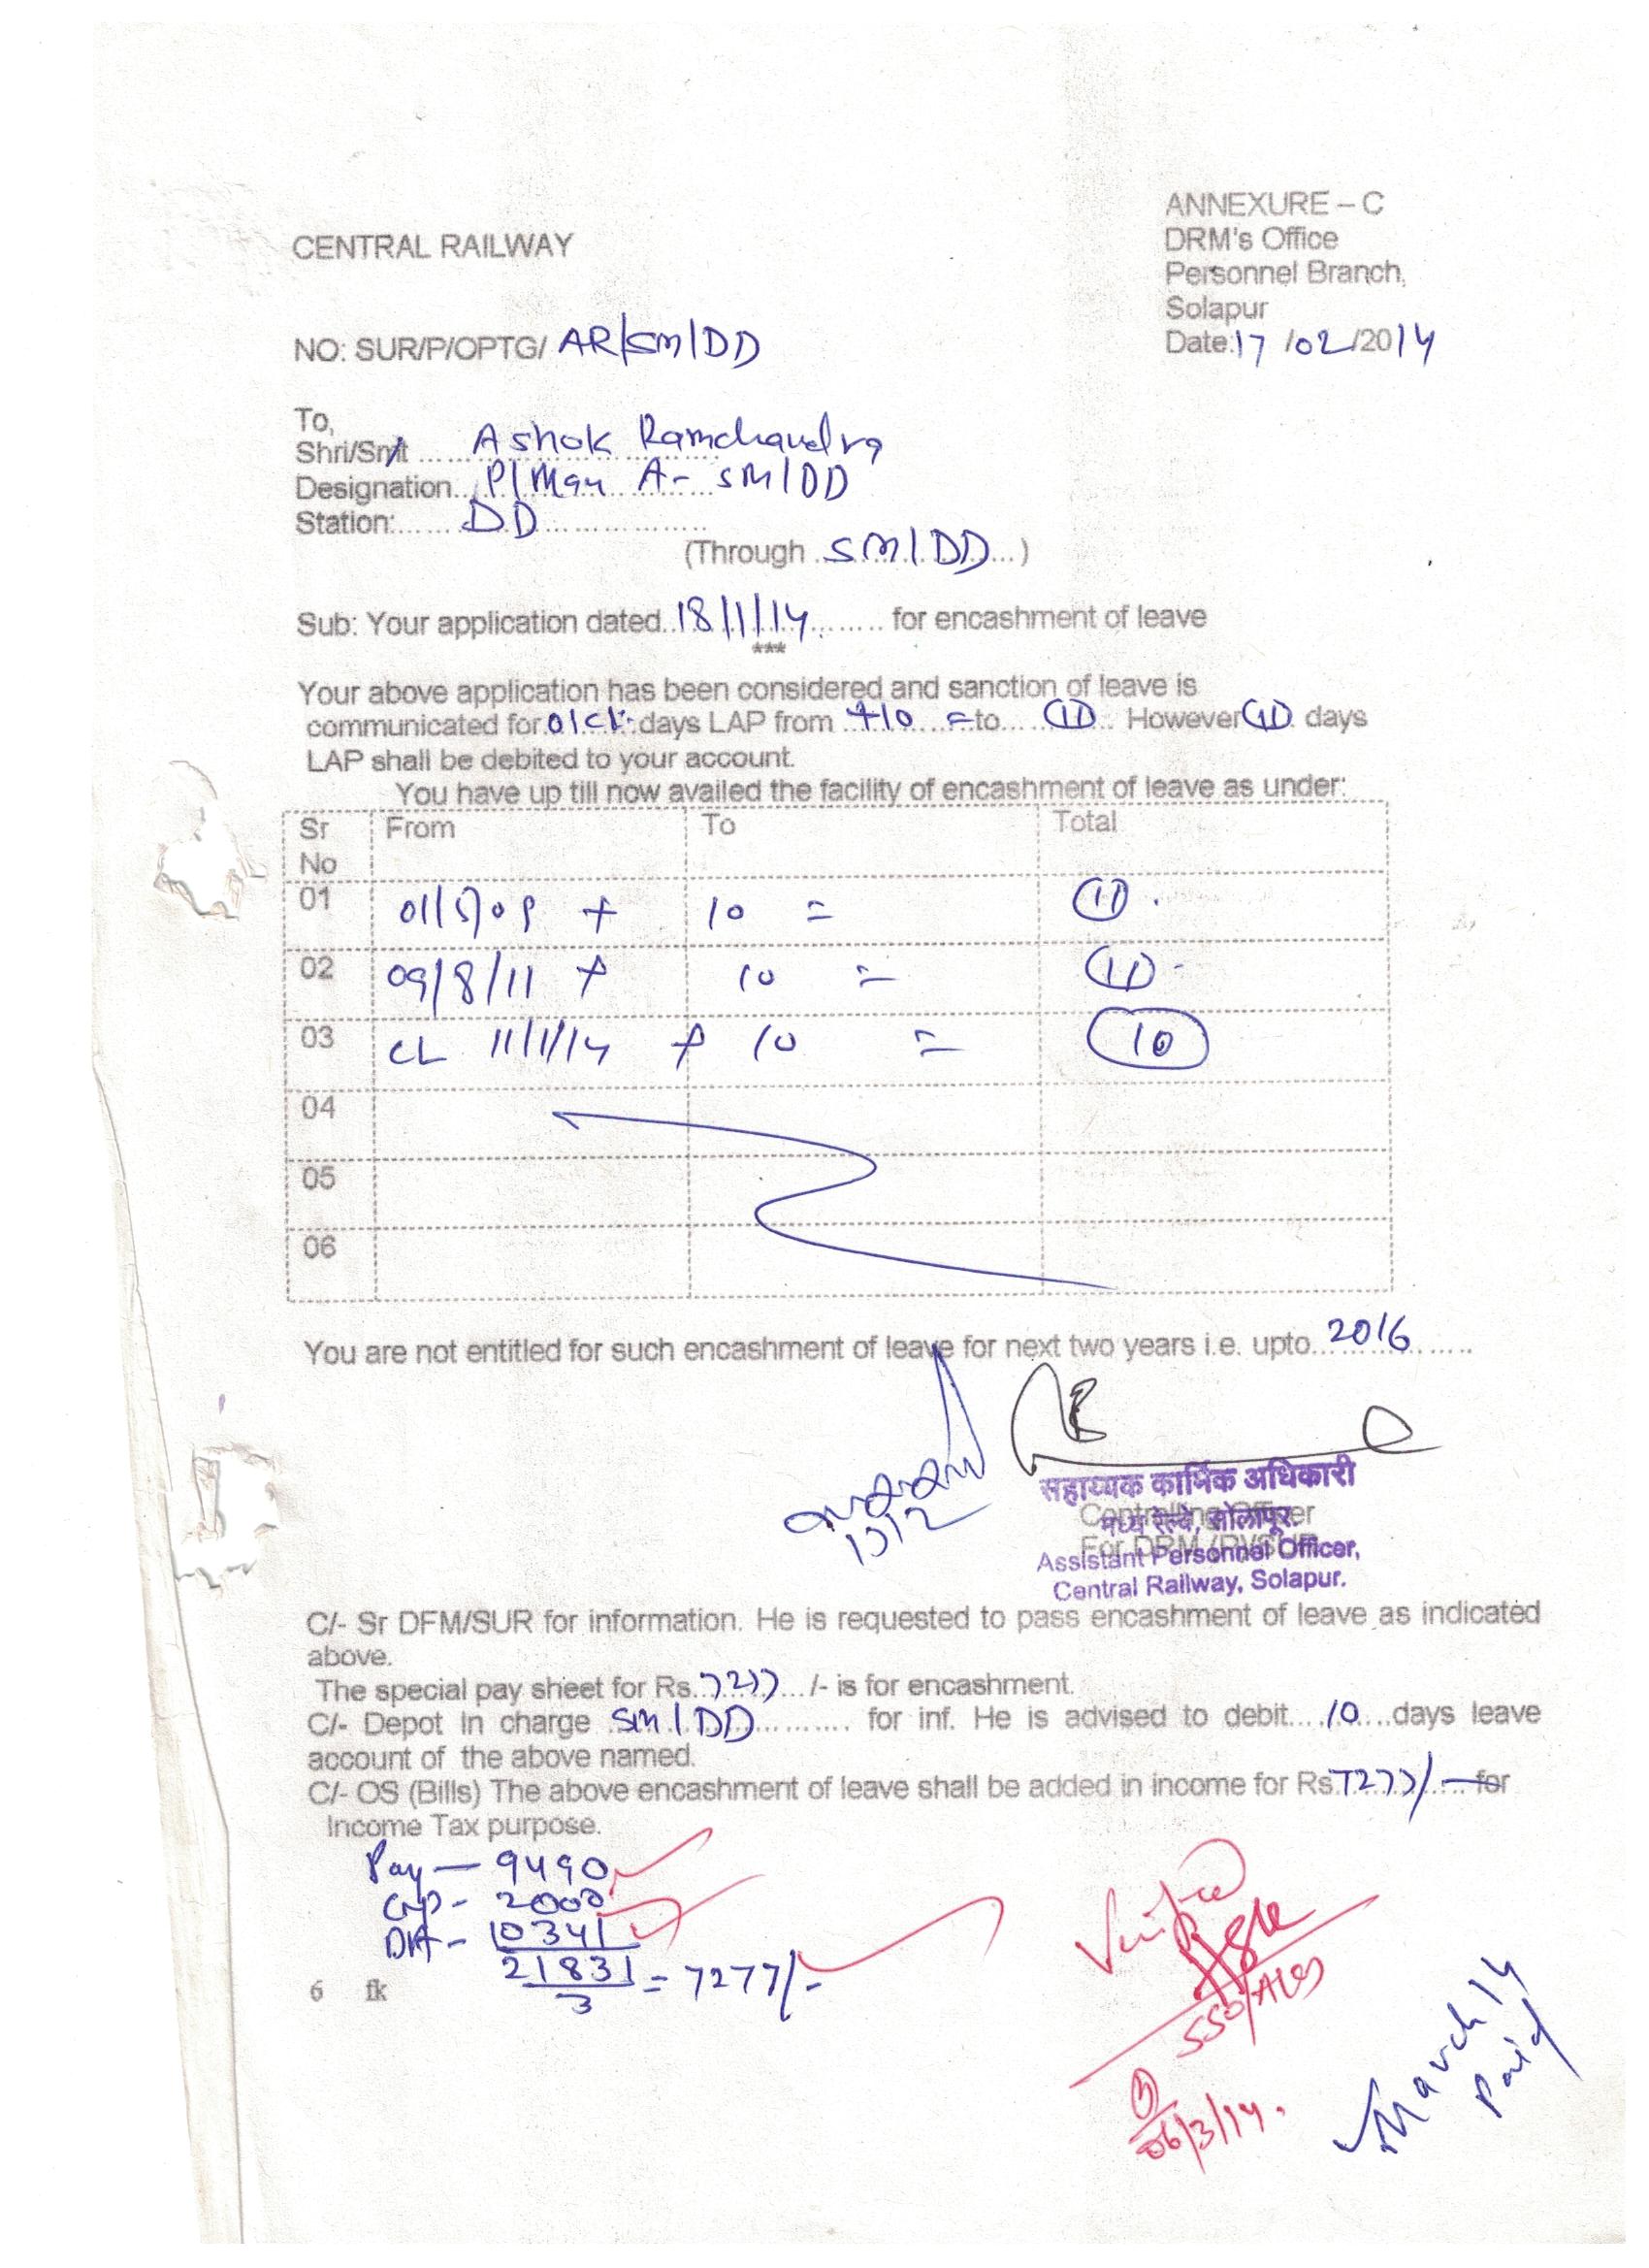 ANNEXURE – C
CENTRAL RAILWAY
DRM's Office
Personnel Branch,
Solapur
NO: SUR/P/OPTG/ AR/SM/DD
Date:17/02/2014
To,
Shri/Smt ..... Ashok Ramchandra
Designation.. P/Man A- SM/DD
Station:...... DD ....................
(Through ..SM/DD...)
Sub: Your application dated..18/1/14......... for encashment of leave
***
Your above application has been considered and sanction of leave is
communicated for 01 CL days LAP from +10 = to.... 11 . However 11 days
LAP shall be debited to your account.
You have up till now availed the facility of encashment of leave as under:
Sr No From To Total
01 01/5/09 + 10 = 11 .
02 09/8/11 + 10 = 11 -
03 CL 11/1/14 + 10 = 10
04
05
06
You are not entitled for such encashment of leave for next two years i.e. upto...2016.......
सहाय्यक कार्मिक अधिकारी
Controlling Officer
मध्य रेल्वे, सोलापूर.
For DRM
Assistant Personnel Officer,
Central Railway, Solapur.
C/- Sr DFM/SUR for information. He is requested to pass encashment of leave as indicated
above.
The special pay sheet for Rs..7277.../- is for encashment.
C/- Depot In charge .SM/DD.......... for inf. He is advised to debit....10....days leave
account of the above named.
C/- OS (Bills) The above encashment of leave shall be added in income for Rs.7277/-..... for
Income Tax purpose.
Pay – 9490
GP - 2000
DA - 10341
21831 = 7277/-
3
6 fk
Verified
SSO/
06/3/14.
March 14
Paid